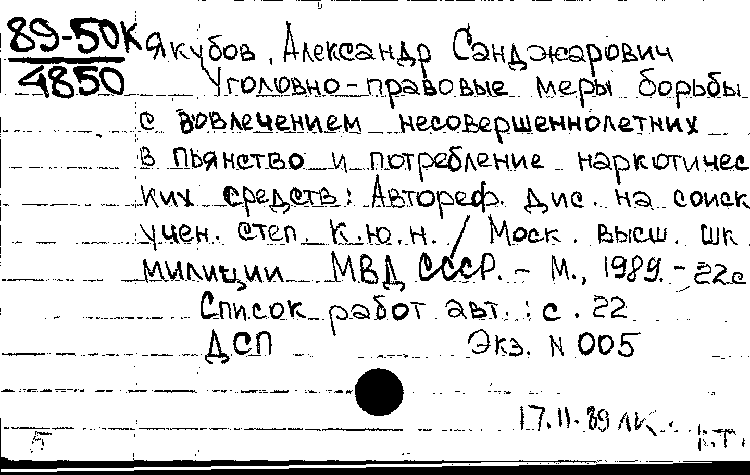 89-50К
4850
Якубов, Александр Санджарович
Уголовно-правовые меры борьбы
с вовлечением несовершеннолетних
в пьянство и потребление наркотичес
ких средств: Автореф. дис. на соиск
учен. степ. к.ю.н. / Моск. высш. шк
милиции МВД СССР. – М., 1989. – 22с
Список работ авт.: с. 22
ДСП Экз. N 005
17.11.89 ЛК.
к.т.